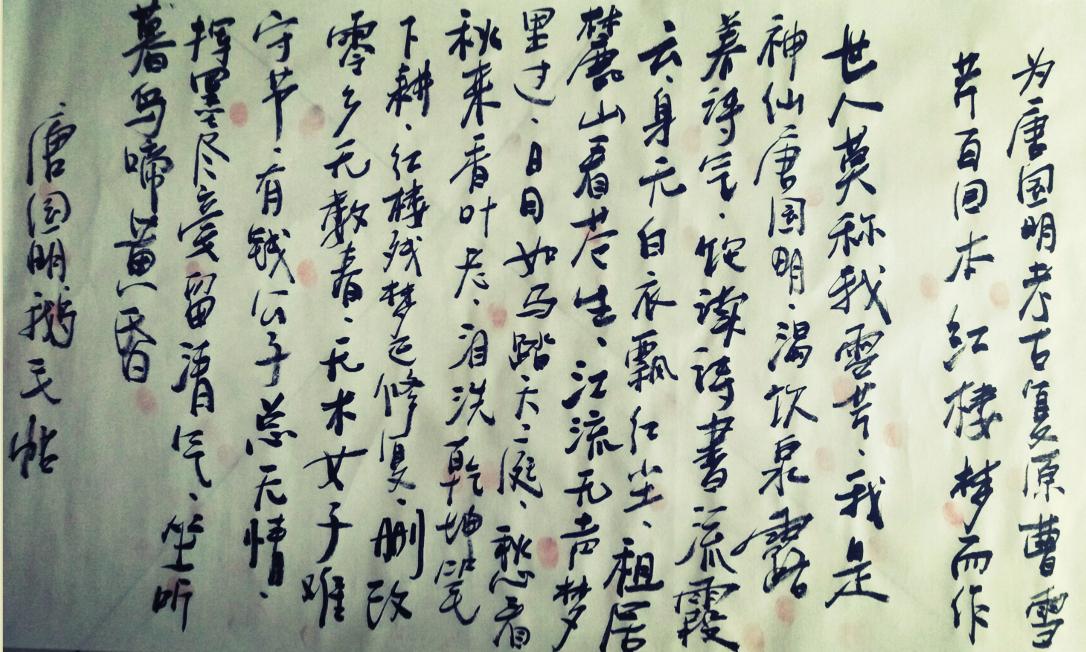 为唐国明考古复原曹雪
芹百回本红楼梦而作
世人莫称我雪芹、我是
神仙唐国明、渴饮泉露
养诗气、饱读诗书流霞
云、身无白衣飘红尘、租居
麓山看苍生、江流无声梦
里过、日月如马踏天庭、愁看
秋来香叶老、泪洗乾坤笔
下耕、红楼残梦迄修复、删改
零乡无数春、无木女子难
守节、有钱公子总无情、
挥墨尽意留清气、坐听
暮鸟啼黄昏
唐国明鹅毛帖